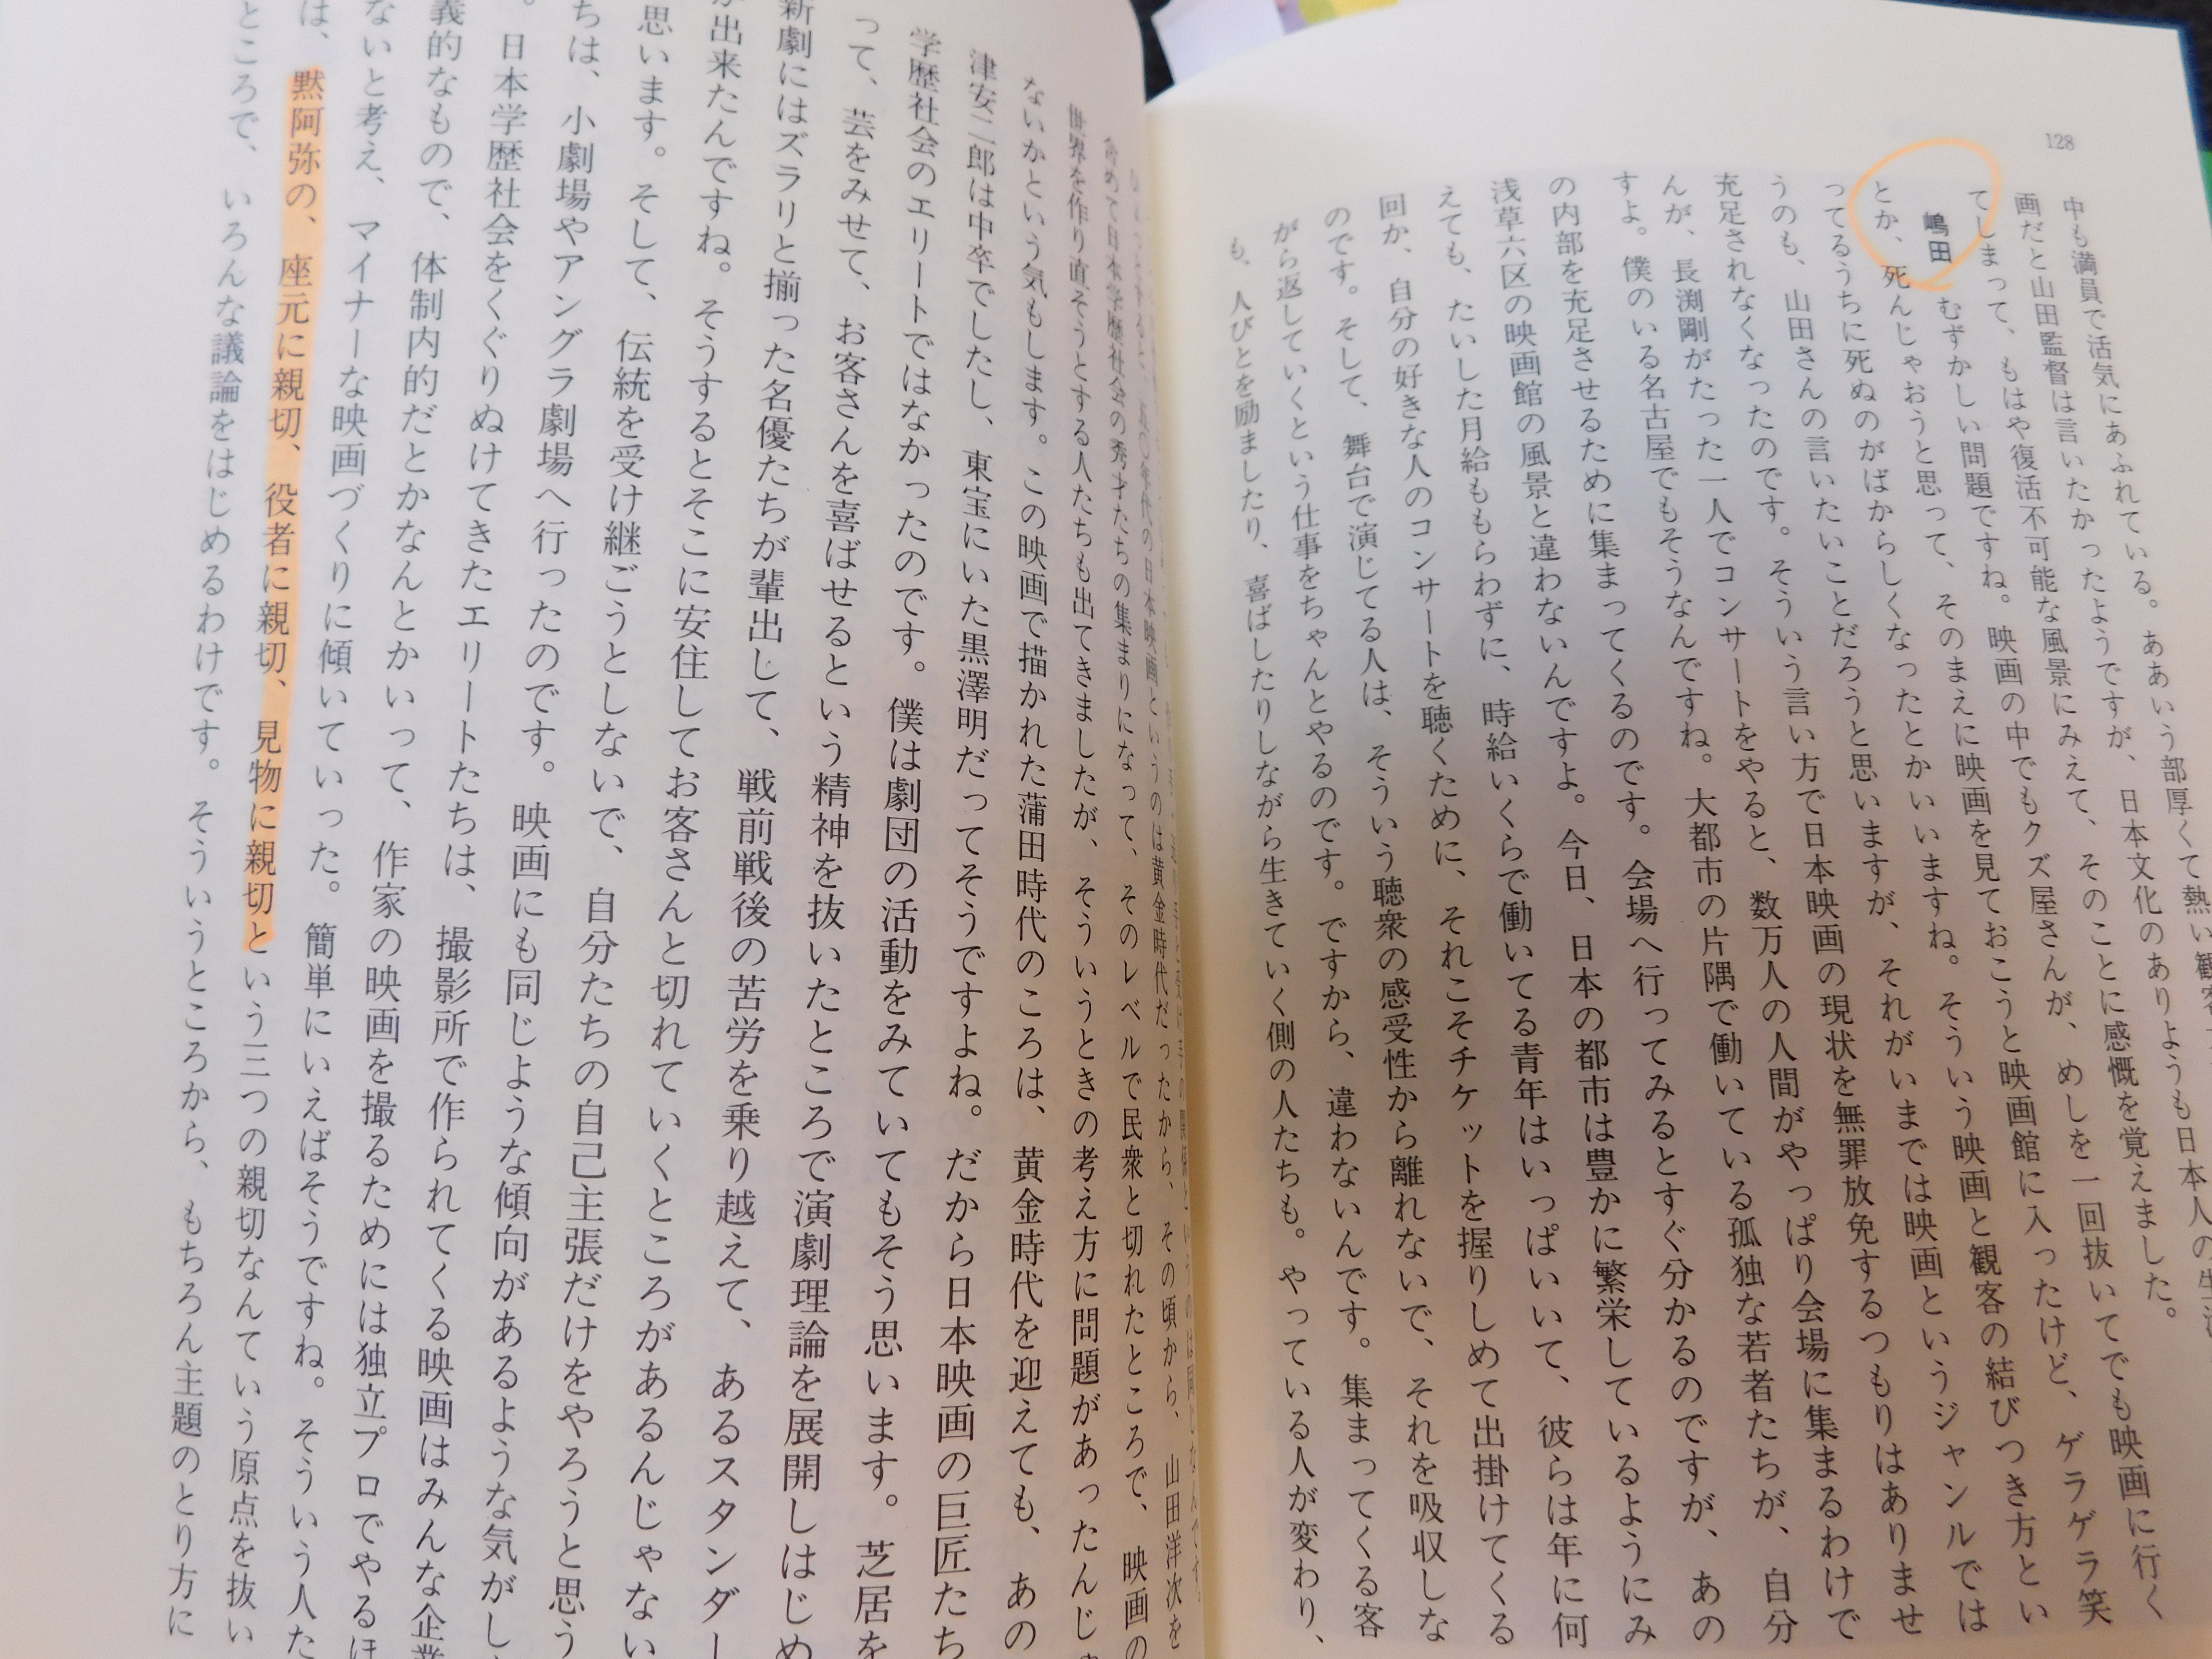 128
中も満員で活気にあふれている。ああいう部厚くて熱い観客
画だと山田監督は言いたかったようですが、日本文化のありようも日本人の生活
てしまって、もはや復活不可能な風景にみえて、そのことに感慨を覚えました。
嶋田　むずかしい問題ですね。映画の中でもクズ屋さんが、めしを一回抜いてでも映画に行く
とか、死んじゃおうと思って、そのまえに映画を見ておこうと映画館に入ったけど、ゲラゲラ笑
ってるうちに死ぬのがばからしくなったとかいいますね。そういう映画と観客の結びつき方とい
うのも、山田さんの言いたいことだろうと思いますが、それがいまでは映画というジャンルでは
充足されなくなったのです。そういう言い方で日本映画の現状を無罪放免するつもりはありませ
んが、長渕剛がたった一人でコンサートをやると、数万人の人間がやっぱり会場に集まるわけで
すよ。僕のいる名古屋でもそうなんですね。大都市の片隅で働いている孤独な若者たちが、自分
の内部を充足させるために集まってくるのです。会場へ行ってみるとすぐ分かるのですが、あの
浅草六区の映画館の風景と違わないんですよ。今日、日本の都市は豊かに繁栄しているようにみ
えても、たいした月給ももらわずに、時給いくらで働いてる青年はいっぱいいて、彼らは年に何
回か、自分の好きな人のコンサートを聴くために、それこそチケットを握りしめて出掛けてくる
のです。そして、舞台で演じてる人は、そういう聴衆の感受性から離れないで、それを吸収しな
がら返していくという仕事をちゃんとやるのです。ですから、違わないんです。集まってくる客
も、人びとを励ましたり、喜ばしたりしながら生きていく側の人たちも。やっている人が変わり、
五〇年代の日本映画というのは黄金時代だったから、その頃から、山田洋次を
めて日本学歴社会の秀才たちの集まりになって、そのレベルで民衆と切れたところで、映画の
世界を作り直そうとする人たちも出てきましたが、そういうときの考え方に問題があったんじ
ないかという気もします。この映画で描かれた蒲田時代のころは、黄金時代を迎えても、あの
津安二郎は中卒でしたし、東宝にいた黒澤明だってそうですよね。だから日本映画の巨匠たち
学歴社会のエリートではなかったのです。僕は劇団の活動をみていてもそう思います。芝居を
って、芸をみせて、お客さんを喜ばせるという精神を抜いたところで演劇理論を展開しはじめ
新劇にはズラリと揃った名優たちが輩出して、戦前戦後の苦労を乗り越えて、あるスタンダー
が出来たんですね。そうするとそこに安住してお客さんと切れていくところがあるんじゃない
思います。そして、伝統を受け継ごうとしないで、自分たちの自己主張だけをやろうと思う
ちは、小劇場やアングラ劇場へ行ったのです。映画にも同じような傾向があるような気がし
。日本学歴社会をくぐりぬけてきたエリートたちは、撮影所で作られてくる映画はみんな企業
義的なもので、体制内的だとかなんとかいって、作家の映画を撮るためには独立プロでやるほ
ないと考え、マイナーな映画づくりに傾いていった。簡単にいえばそうですね。そういう人た
は、黙阿弥の、座元に親切、役者に親切、見物に親切という三つの親切なんていう原点を抜い
ところで、いろんな議論をはじめるわけです。そういうところから、もちろん主題のとり方に